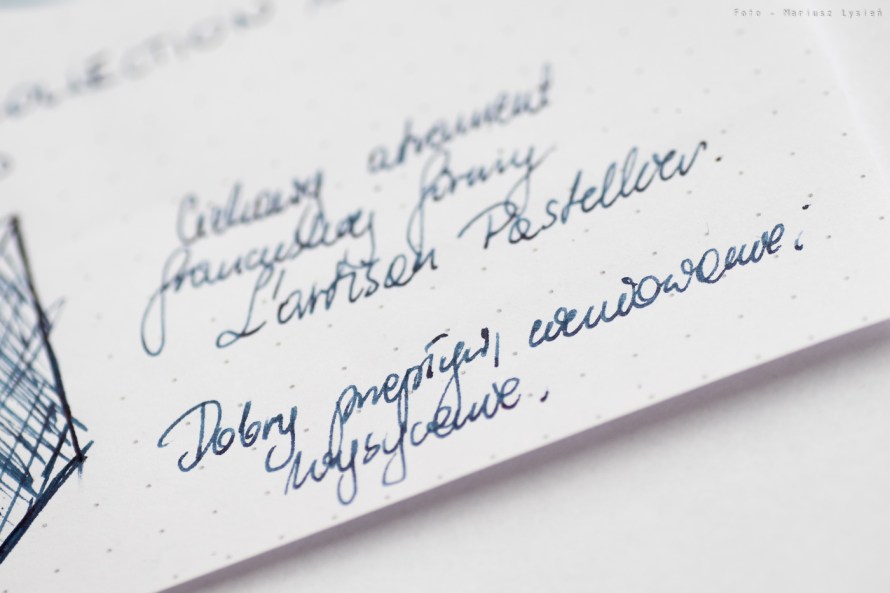 Foto - Mariusz Łysiań
COLLECTION
Ciekawy atrament
francuskiej firmy
L'artisan Pastellier.
Dobry przepływ, cieniowanie i
wysycenie.